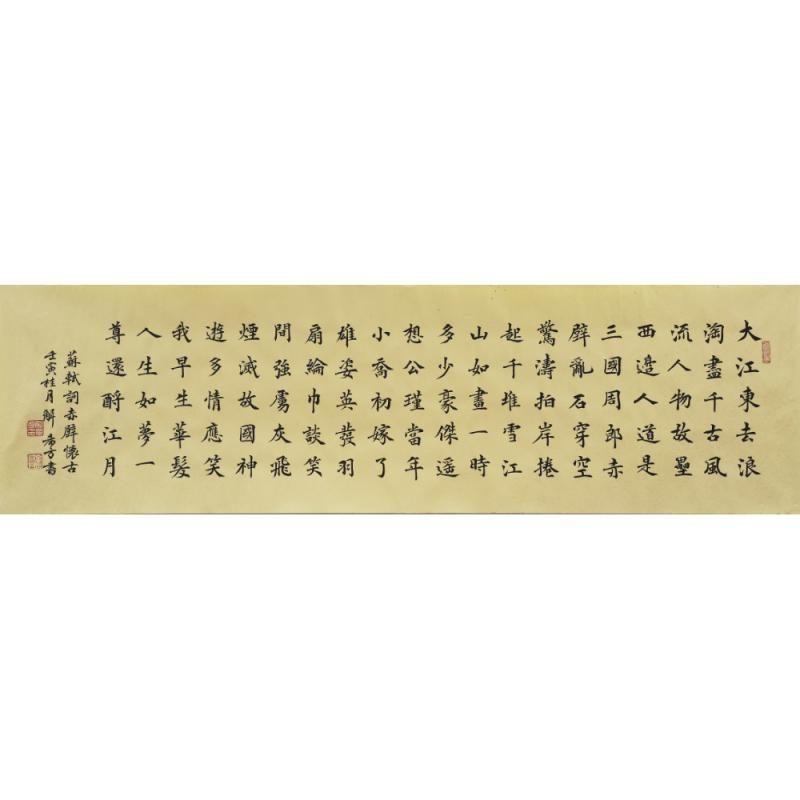 大江東去浪
淘盡千古風
流人物故壘
西邊人道是
三國周郎赤
壁亂石穿空
驚濤拍岸捲
起千堆雪江
山如畫一時
多少豪傑遥
想公瑾當年
小喬初嫁了
雄姿英發羽
扇綸巾談笑
間強虜灰飛
煙滅故國神
遊多情應笑
我早生華髮
人生如夢一
尊還酹江月
蘇軾詞赤壁懷古
壬寅桂月解希方書